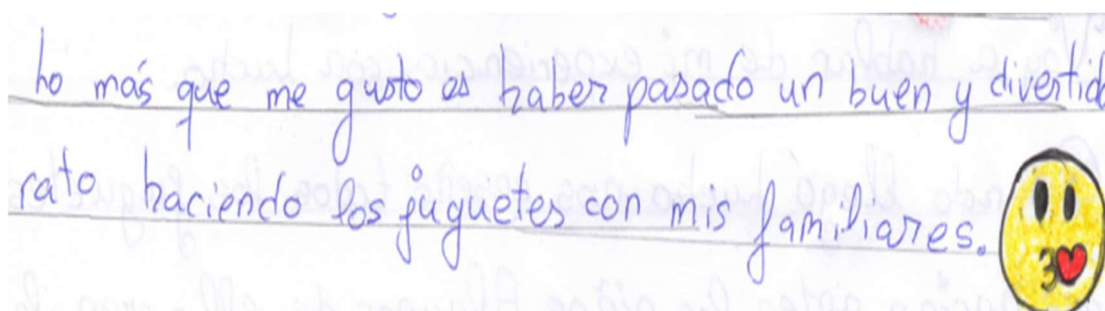 Lo más que me gusto es haber pasado un buen y divertido
rato haciendo los juguetes con mis familiares.